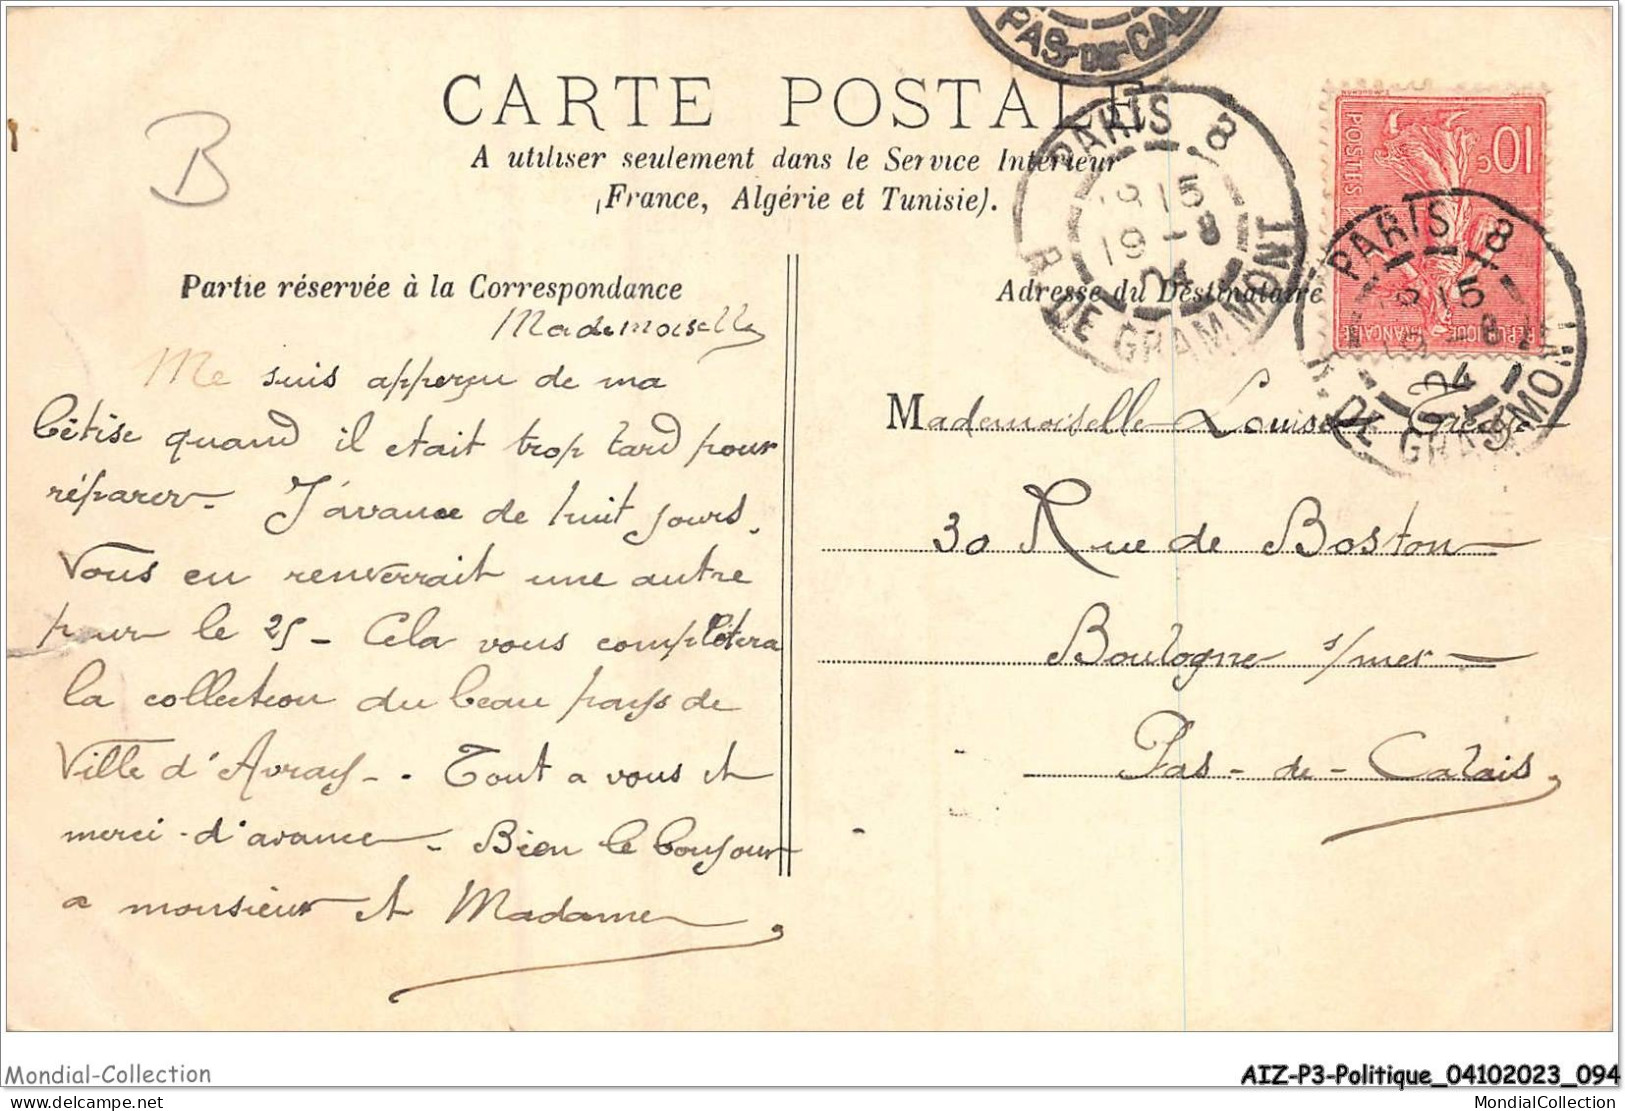 PAS-DE-CAL
CARTE POSTALE
A utiliser seulement dans le Service Intérieur
(France, Algérie et Tunisie).
B
PARIS 8
15
19 - 8
04
R. DE GRAMMONT
10c
POSTES
REPUBLIQUE FRANCAISE
PARIS 8
15
8
04
DE GRAMMO
Partie réservée à la Correspondance
Mademoiselle
Me suis apperçu de ma
bêtise quand il etait trop tard pour
réparer - J'avance de huit jours.
Vous en renverrait une autre
pour le 25 - Cela vous complètera
la collection du beau pays de
Ville d'Avray - . Tout a vous et
merci d'avance - Bien le bonjour
a monsieur et Madame
Adresse du Destinataire
Mademoiselle Louise
30 Rue de Boston
Boulogne s/mer
Pas-de-Calais
Mondial-Collection
AIZ-P3-Politique_04102023_094
www.delcampe.net
MondialCollection